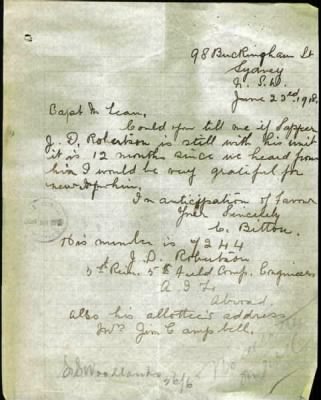 98 Buckingham St
Sydney
N. S. W.
June 23rd. 1918.
Capt McLean.
Could you till me if Sapper
J. D. Robertson is still with his unit
it is 12 months since we heard from
him I would be very grateful for
news of him.
In anticipation of favour
Your Sincerely
C. Bitton.
His number is 7244
J. D. Robertson
5th Rein. 5th Field Comp. Engineers
A. I. F.
Abroad.
also his allottie's address
Mrs Jim Campbell.
SS Woodlands
26/6